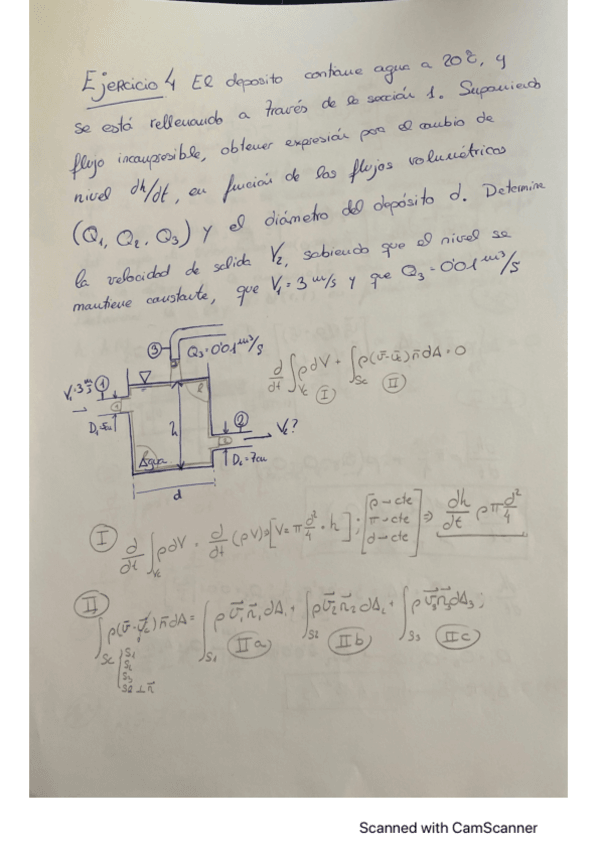 Ejercicio 4 El deposito contiene agua a 20ºC, y
se está rellenando a través de la sección 1. Suponiendo
flujo incompresible, obtener expresión para el cambio de
nivel dh/dt, en función de los flujos volumétricos
(Q₁, Q₂, Q₃) y el diámetro del depósito d. Determine
la velocidad de salida V₂, sabiendo que el nivel se
mantiene constante, que V₁ = 3 m/s y que Q₃ = 0'01 m³/s
③ Q₃ = 0'01 m³/s
d/dt ∫Vc ρdV + ∫Sc ρ(v̄-v̄c)n̄dA = 0
Ⓘ ⒾⒾ
V₁ = 3 m/s ①
② V₂?
h
Agua D₂ = 7cm
d
Ⓘ d/dt ∫Vc ρdV = d/dt (ρV) ⇒ [V = π d²/4 · h]; [ρ → cte π → cte d → cte] ⇒ dh/dt ρ π d²/4
II
∫Sc ρ(v̄-v̄c)n̄dA = ∫S1 ρ v̄₁n̄₁dA₁ + ∫S2 ρv̄₂n̄₂dA₂ + ∫S3 ρv̄₃n̄₃dA₃;
IIa IIb IIc
S1
S2
S3
Scanned with CamScanner